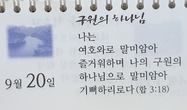 구원의 하나님
나는
여호와로 말미암아
즐거워하며 나의 구원의
하나님으로 말미암아
기뻐하리로다 (합 3:18)
9월 20일